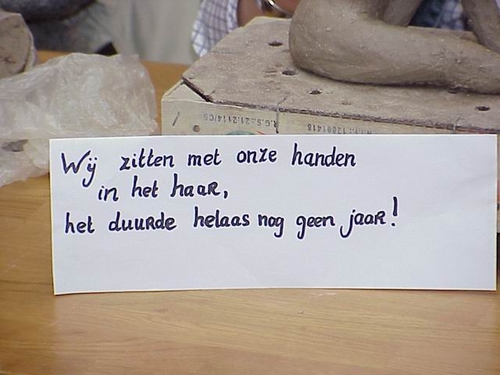 R.G.S.21.2114/CS
Wij zitten met onze handen
in het haar,
het duurde helaas nog geen jaar!